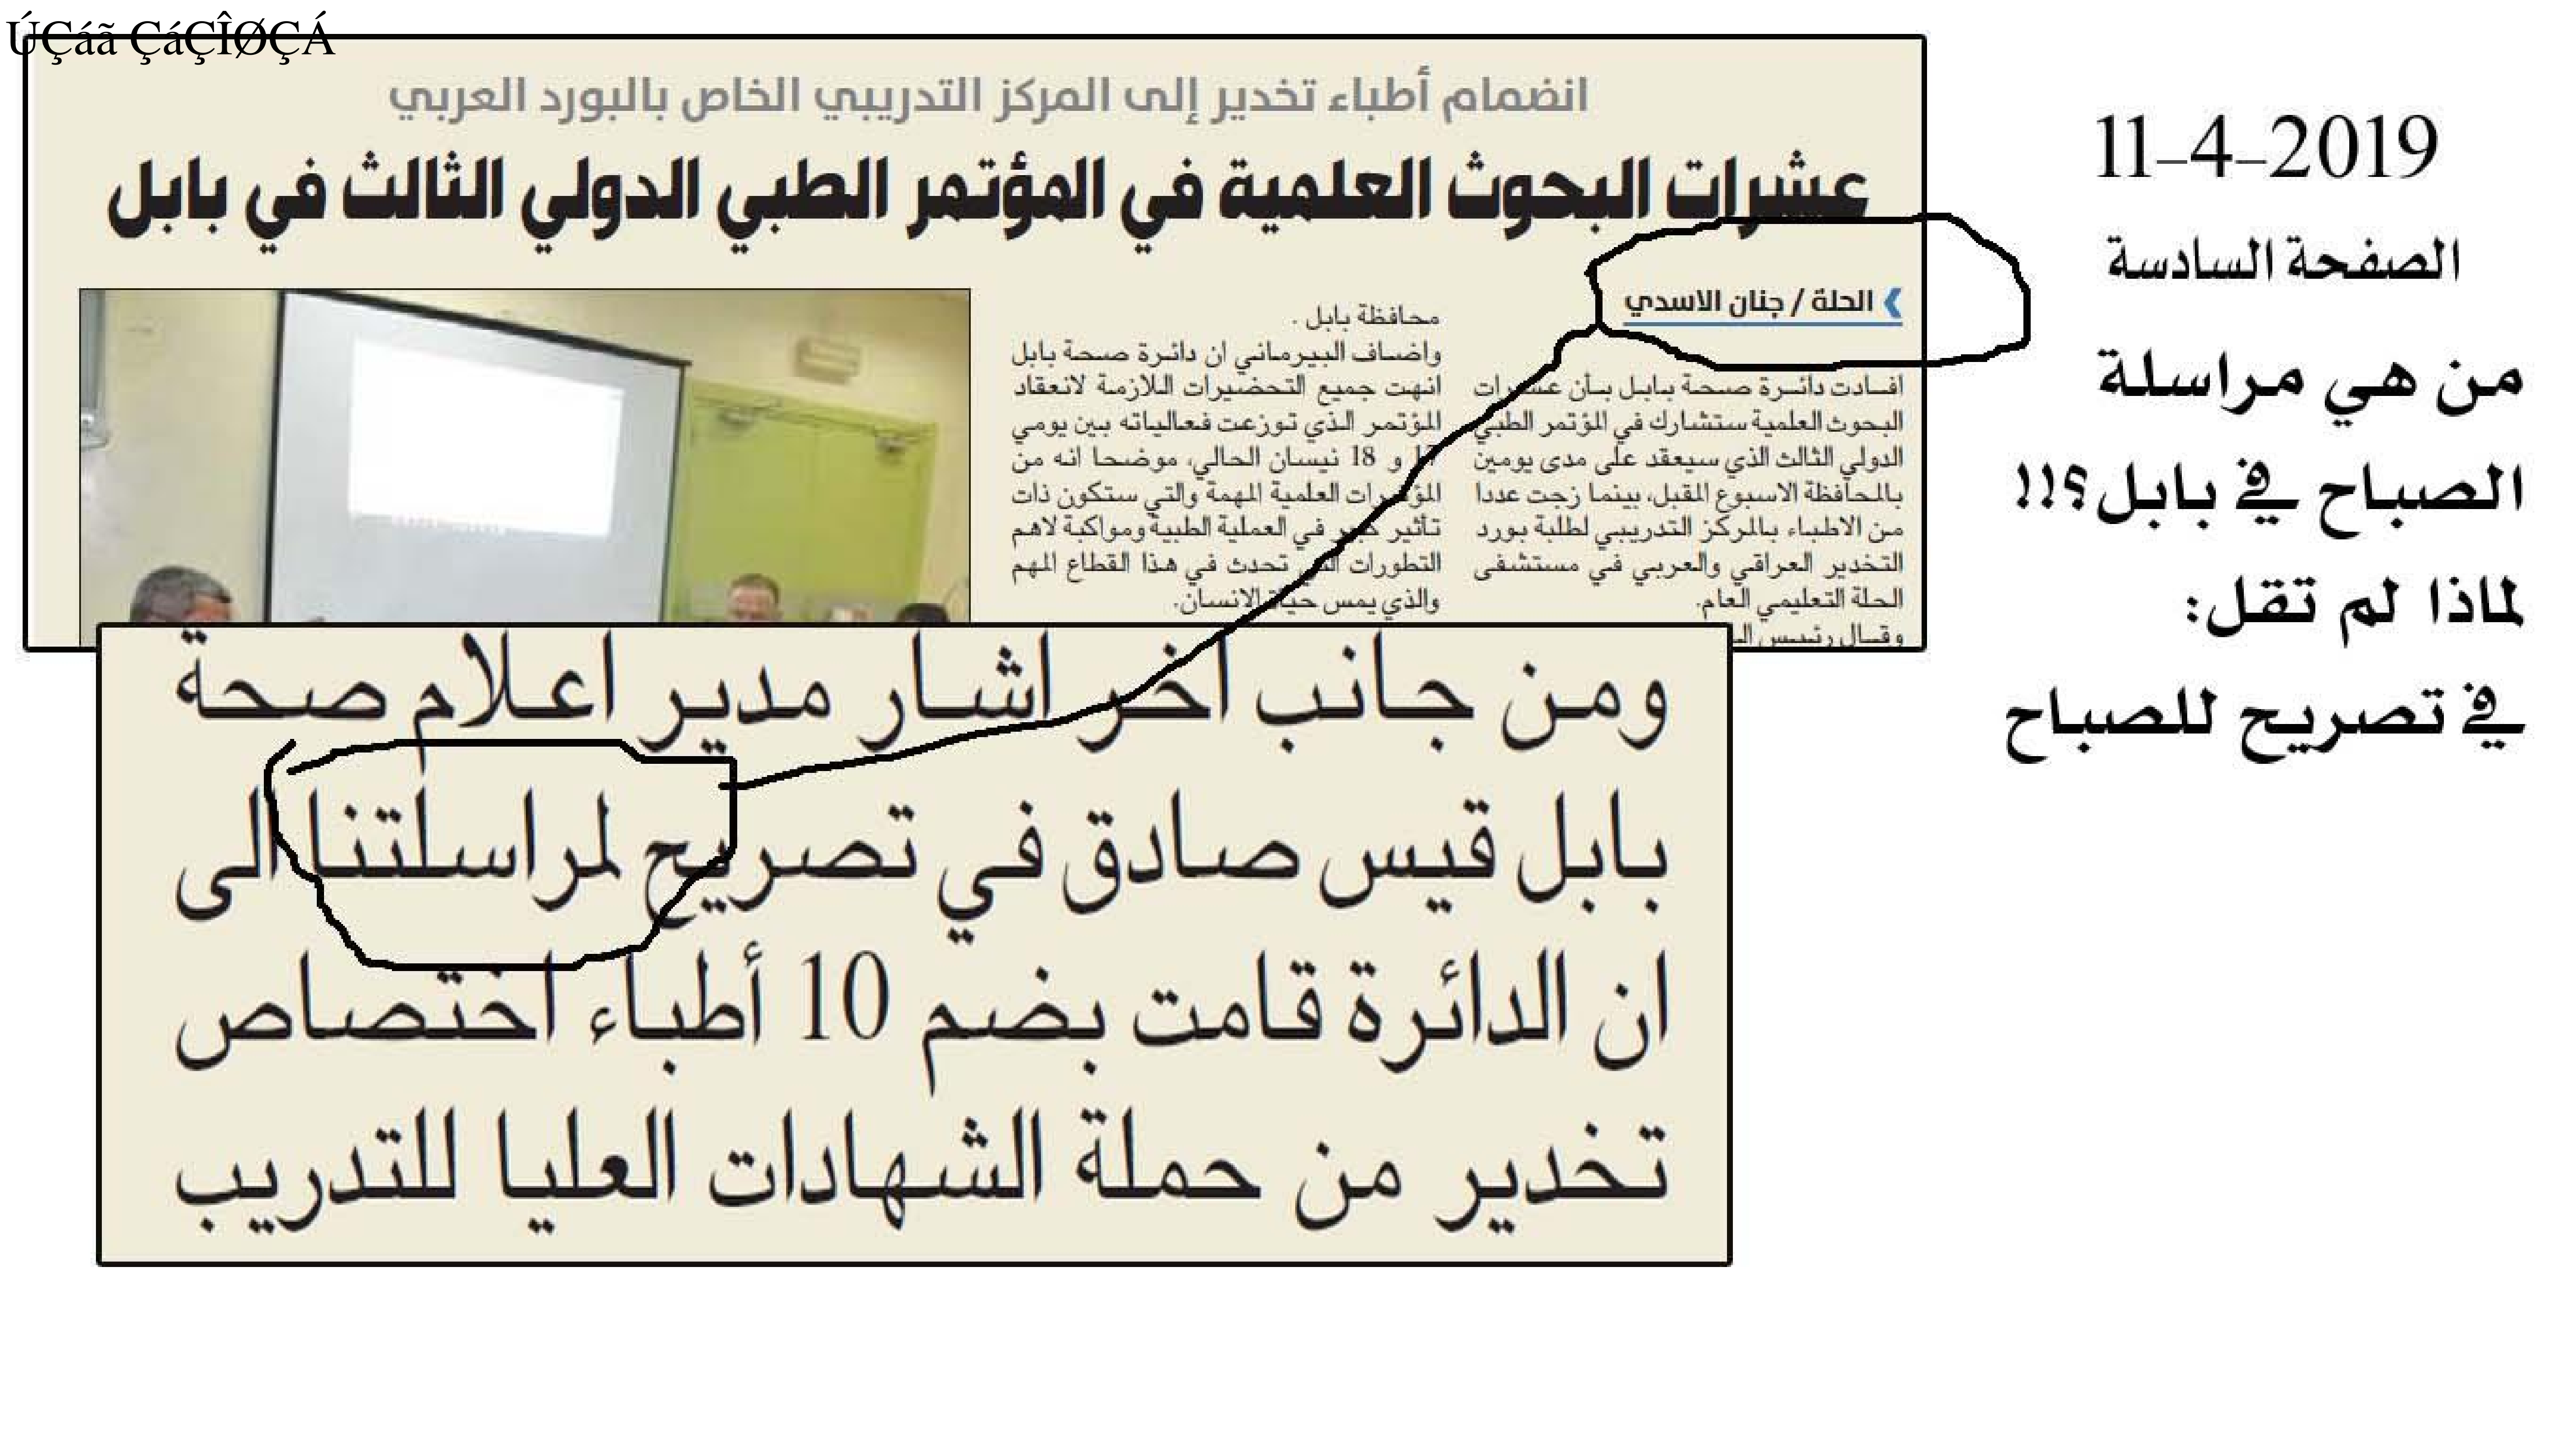 ÚÇáã ÇáÇÎØÇÁ
انضمام أطباء تخدير إلى المركز التدريبي الخاص بالبورد العربي
عشرات البحوث العلمية في المؤتمر الطبي الدولي الثالث في بابل
الحلة / جنان الاسدي
افادت دائرة صحة بابل بأن عشرات
البحوث العلمية ستشارك في المؤتمر الطبي
الدولي الثالث الذي سيعقد على مدى يومين
بالمحافظة الاسبوع المقبل، بينما زجت عددا
من الاطباء بالمركز التدريبي لطلبة بورد
التخدير العراقي والعربي في مستشفى
الحلة التعليمي العام.
وقال رئيس
محافظة بابل .
واضاف البيرماني ان دائرة صحة بابل
انهت جميع التحضيرات اللازمة لانعقاد
المؤتمر الذي توزعت فعالياته بين يومي
17 و 18 نيسان الحالي، موضحا انه من
المؤتمرات العلمية المهمة والتي ستكون ذات
تأثير كبير في العملية الطبية ومواكبة لاهم
التطورات التي تحدث في هذا القطاع المهم
والذي يمس حياة الانسان.
ومن جانب اخر اشار مدير اعلام صحة
بابل قيس صادق في تصريح لمراسلتنا الى
ان الدائرة قامت بضم 10 أطباء اختصاص
تخدير من حملة الشهادات العليا للتدريب
11-4-2019
الصفحة السادسة
من هي مراسلة
الصباح في بابل؟!!
لماذا لم تقل:
في تصريح للصباح